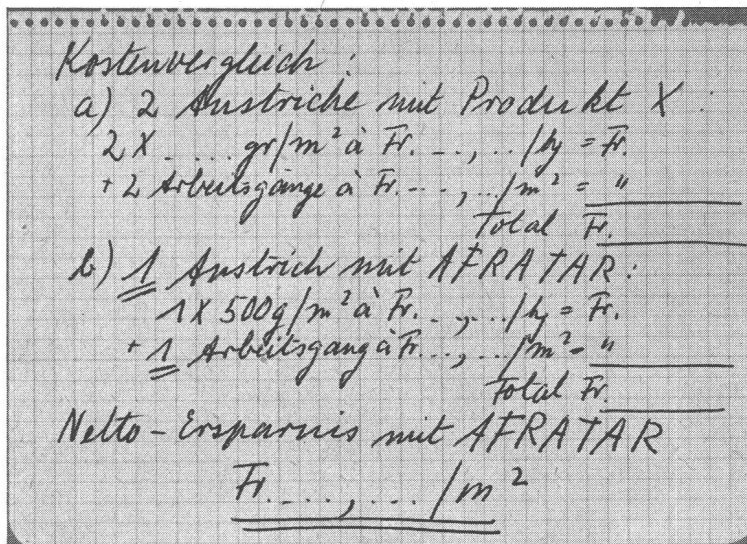 Kostenvergleich:
a) 2 Anstriche mit Produkt X:
2 X .... gr/m² à Fr. ..,../kg = Fr.
+ 2 Arbeitsgänge à Fr. ...,.../m² = "
Total Fr.
b) 1 Anstrich mit AFRATAR:
1 X 500g/m² à Fr. ..,../kg = Fr.
+ 1 Arbeitsgang à Fr. ..,../m² = "
Total Fr.
Netto-Ersparnis mit AFRATAR
Fr. ...,.../m²